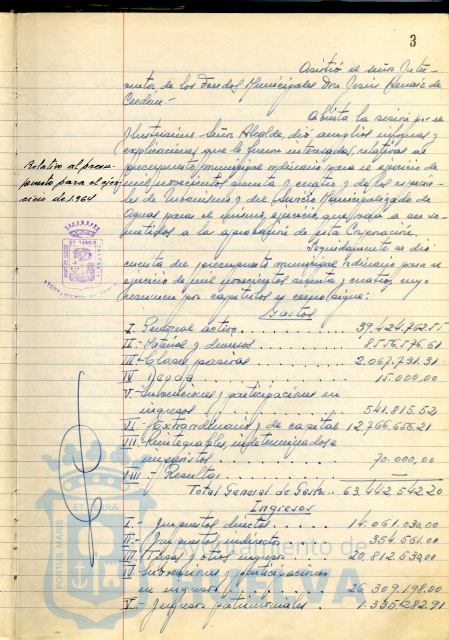 3
Asistió el señor Inter-
ventor, de los Fondos Municipales Don Jesús de
Cerdán.-
Abierta la sesión por el
Ilustrísimo Señor Alcalde, dió amplios informes y
explicaciones que le fueron interesadas, relativas al
presupuesto municipal ordinario para el ejercicio de
mil novecientos sesenta y cuatro y de los especia-
les de Urbanismo y del Servicio Municipalizado de
Aguas para el mismo ejercicio, que iban a ser so-
metidos a la aprobación de esta Corporación.
Relativo al presu-
puesto para el ejer-
cicio de 1964
Seguidamente se dió
cuenta del presupuesto municipal ordinario para el
ejercicio de mil novecientos sesenta y cuatro, cuyo
resumen por capítulos es como sigue:
Gastos
I.- Personal activo 39.424.762.55
II.- Material y diversos 8.556.576.61
III.- Clases pasivas 2.067.731.31
IV Deuda 15.000,00
V.- Subvenciones y participaciones en
ingresos 541.815.52
VI.- Extraordinarios y de capital 12.766.656.21
VII.- Reintegrables, indeterminados e
imprevistos 70.000,00
VIII.- Resultas
Total General de Gastos 63.442.542.20
Ingresos
I.- Impuestos directos 14.061.030.00
II.- Impuestos indirectos 354.561.00
III.- Tasas y otros ingresos 20.812.639.00
IV.- Subvenciones y participaciones
en ingresos 26.309.198.00
V.- Ingresos patrimoniales 1.335.282.91
PORTUS MARIS
ET TERRAE
Ayuntamiento de
HUELVA